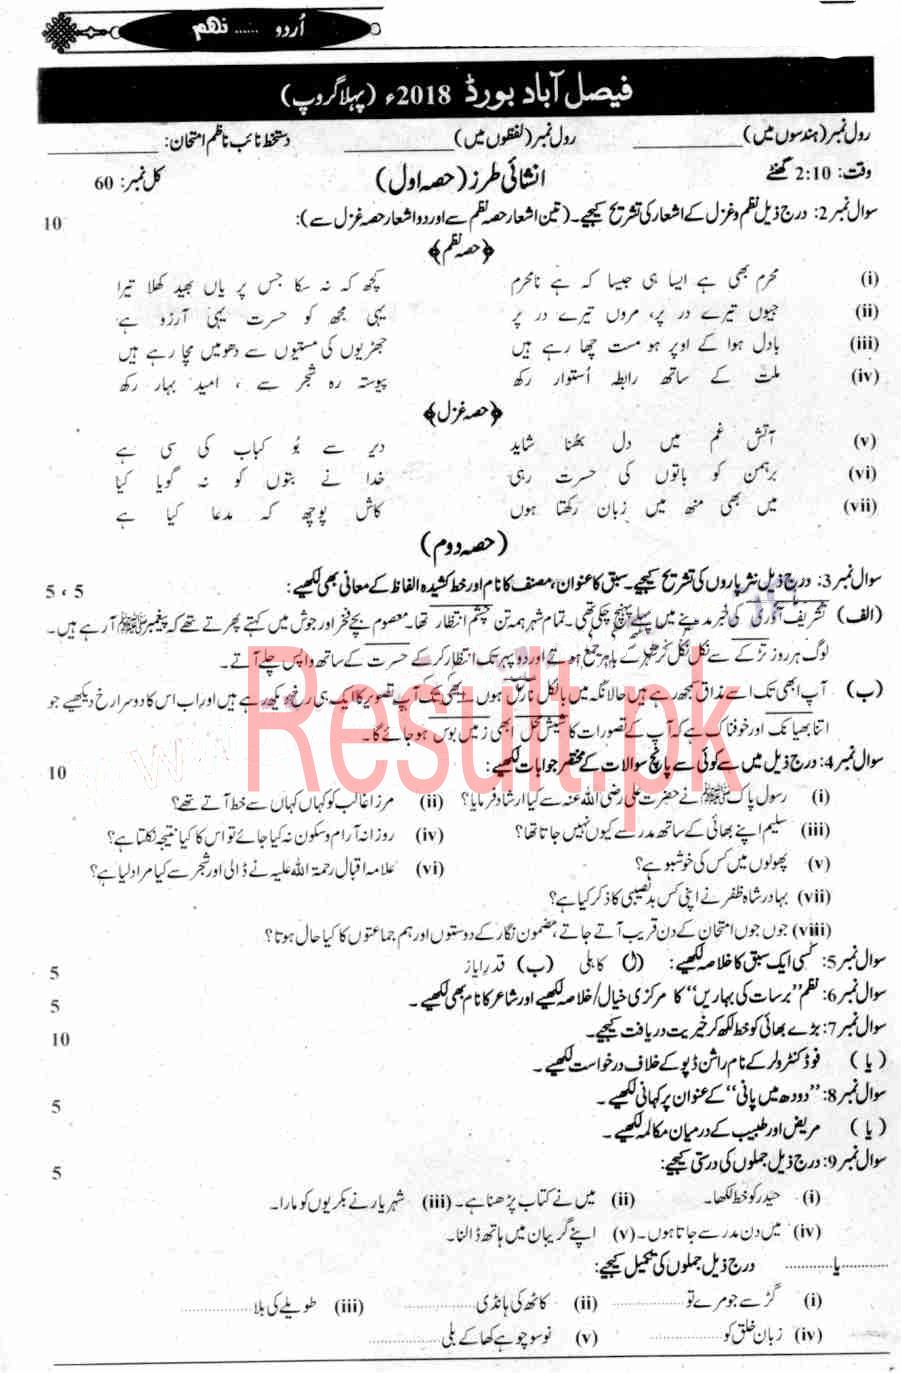 اُردو ...... نہم
فیصل آباد بورڈ 2018ء (پہلا گروپ)
رول نمبر (ہندسوں میں) ____________ رول نمبر (لفظوں میں) ____________ دستخط نائب ناظم امتحان: ____________
وقت: 2:10 گھنٹے انشائی طرز (حصہ اول) کل نمبر: 60
سوال نمبر 2: درج ذیل نظم و غزل کے اشعار کی تشریح کیجیے۔ (تین اشعار حصہ نظم سے اور دو اشعار حصہ غزل سے): 10
﴿حصہ نظم﴾
(i) محرم بھی ہے ایسا ہی جیسا کہ ہے نامحرم کچھ کہہ نہ سکا جس پر یاں بھید کھلا تیرا
(ii) جیوں تیرے در پر، مروں تیرے در پر یہی مجھ کو حسرت یہی آرزو ہے
(iii) بادل ہوا کے اوپر ہو مست چھا رہے ہیں جھڑیوں کی مستیوں سے دھومیں مچا رہے ہیں
(iv) ملت کے ساتھ رابطہ اُستوار رکھ پیوستہ رہ شجر سے ، امید بہار رکھ
﴿حصہ غزل﴾
(v) آتش غم میں دل بھنا شاید دیر سے بُو کباب کی سی ہے
(vi) برہمن کو باتوں کی حسرت رہی خدا نے بتوں کو نہ گویا کیا
(vii) میں بھی منھ میں زبان رکھتا ہوں کاش پوچھو کہ مدعا کیا ہے
(حصہ دوم)
سوال نمبر 3: درج ذیل نثر پاروں کی تشریح کیجیے۔ سبق کا عنوان، مصنف کا نام اور خط کشیدہ الفاظ کے معانی بھی لکھیے: 5 ، 5
(الف) تشریف آوری کی خبر مدینے میں پہلے پہنچ چکی تھی۔ تمام شہر ہمہ تن چشم انتظار تھا۔ معصوم بچے فخر اور جوش میں کہتے پھرتے تھے کہ پیغمبرﷺ آ رہے ہیں۔
لوگ ہر روز تڑکے سے نکل نکل کر شہر کے باہر جمع ہوتے اور دوپہر تک انتظار کر کے حسرت کے ساتھ واپس چلے آتے۔
(ب) آپ ابھی تک اسے مذاق سمجھ رہے ہیں حالانکہ میں بالکل نارمل ہوں۔ ابھی تک آپ تصویر کا ایک ہی رخ دیکھ رہے ہیں اور اب اس کا دوسرا رخ دیکھیے جو
اتنا بھیانک اور خوفناک ہے کہ آپ کے تصورات کا شیش محل ابھی زمیں بوس ہو جائے گا۔
سوال نمبر 4: درج ذیل میں سے کوئی سے پانچ سوالات کے مختصر جوابات لکھیے: 10
(i) رسول پاکﷺ نے حضرت علی رضی اللہ عنہ سے کیا ارشاد فرمایا؟ (ii) مرزا غالب کو کہاں کہاں سے خط آتے تھے؟
(iii) سلیم اپنے بھائی کے ساتھ مدرسے کیوں نہیں جاتا تھا؟ (iv) روزانہ آرام و سکون نہ کیا جائے تو اس کا کیا نتیجہ نکلتا ہے؟
(v) پھولوں میں کس کی خوشبو ہے؟ (vi) علامہ اقبال رحمۃ اللہ علیہ نے ڈالی اور شجر سے کیا مراد لیا ہے؟
(vii) بہادر شاہ ظفر نے اپنی کس بدنصیبی کا ذکر کیا ہے؟
(viii) جوں جوں امتحان کے دن قریب آتے جاتے، مضمون نگار کے دوستوں اور ہم جماعتوں کا کیا حال ہوتا؟
سوال نمبر 5: کسی ایک سبق کا خلاصہ لکھیے: (ا) کاہلی (ب) قدر ایاز 5
سوال نمبر 6: نظم "برسات کی بہاریں" کا مرکزی خیال/خلاصہ لکھیے اور شاعر کا نام بھی لکھیے۔ 5
سوال نمبر 7: بڑے بھائی کو خط لکھ کر خیریت دریافت کیجیے۔ 10
(یا) فوڈ کنٹرولر کے نام راشن ڈپو کے خلاف درخواست لکھیے۔
سوال نمبر 8: "دودھ میں پانی" کے عنوان پر کہانی لکھیے۔ 5
(یا) مریض اور طبیب کے درمیان مکالمہ لکھیے۔
سوال نمبر 9: درج ذیل جملوں کی درستی کیجیے: 5
(i) حیدر کو خط لکھا۔ (ii) میں نے کتاب پڑھنا ہے۔ (iii) شہریار نے بکریوں کو مارا۔
(iv) میں دن مدرسے جاتا ہوں۔ (v) اپنے گریبان میں ہاتھ ڈالنا۔
............یا............ درج ذیل جملوں کی تکمیل کیجیے:
(i) گڑ سے جو مرے تو .................. (ii) کاٹھ کی ہانڈی .................. (iii) طویلے کی بلا ..................
(iv) زبان خلق کو .................. (v) نو سو چوہے کھا کے بلی ..................
Result.pk